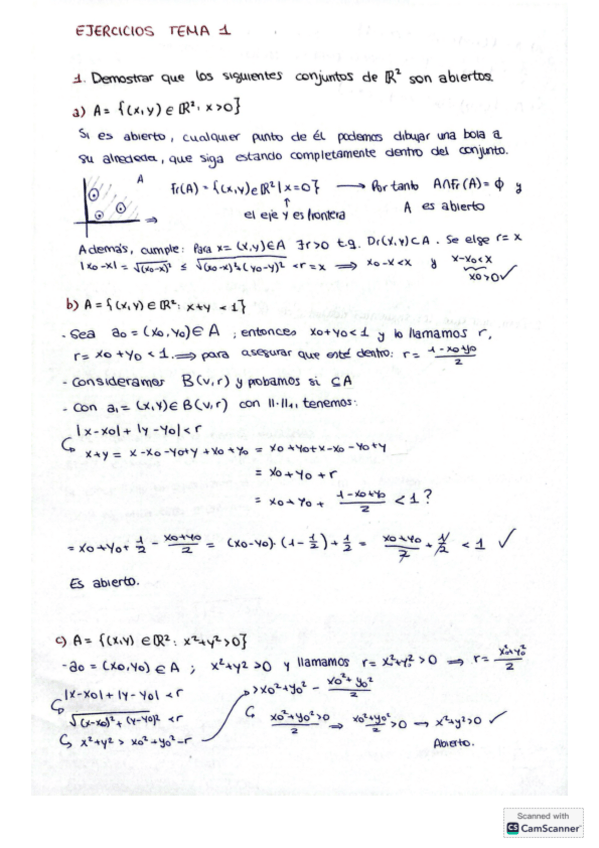 EJERCICIOS TEMA 1
1. Demostrar que los siguientes conjuntos de ℝ² son abiertos.
a) A = {(x,y) ∈ ℝ² : x>0}
Si es abierto, cualquier punto de él podemos dibujar una bola a
su alrededor, que siga estando completamente dentro del conjunto.
A
Fr(A) = {(x,y) ∈ ℝ² | x=0} → Por tanto A∩Fr(A) = ϕ y
↑
el eje Y es frontera
A es abierto
Además, cumple: Para x = (x,y) ∈ A ∃r>0 t.q. Dr(x,y) ⊂ A. Se elge r = x
|x₀-x| = √(x₀-x)² ≤ √(x₀-x)²+(y₀-y)² < r = x ⟹ x₀-x<x y x-x₀<x
x₀>0 ✓
b) A = {(x,y) ∈ ℝ² : x+y < 1}
- Sea a₀ = (x₀,y₀) ∈ A ; entonces x₀+y₀<1 y lo llamamos r,
r = x₀+y₀ < 1 ⟹ para asegurar que esté dentro: r = (1-x₀+y₀)/2
- Consideramos B(v,r) y probamos si ⊆A
- Con a₁ = (x,y) ∈ B(v,r) con ||·||₁, tenemos:
|x-x₀| + |y-y₀| < r
↳ x+y = x-x₀-y₀+y+x₀+y₀ = x₀+y₀+x-x₀-y₀+y
= x₀+y₀+r
= x₀+y₀+ (1-x₀+y₀)/2 < 1?
= x₀+y₀+ 1/2 - (x₀+y₀)/2 = (x₀-y₀)·(1-1/2)+1/2 = (x₀+y₀)/2 + 1/2 < 1 ✓
Es abierto.
c) A = {(x,y) ∈ ℝ² : x²+y²>0}
- a₀ = (x₀,y₀) ∈ A ; x²+y²>0 y llamamos r = x₀²+y₀² > 0 ⟹ r = (x₀²+y₀²)/2
|x-x₀| + |y-y₀| < r
↳ √(x-x₀)²+(y-y₀)² < r
↳ x²+y² > x₀²+y₀²-r
> x₀²+y₀² - (x₀²+y₀²)/2
↳ (x₀²+y₀²>0)/2 ⟹ (x₀²+y₀²)/2 >0 → x²+y²>0 ✓
Abierto.
Scanned with
CS CamScanner